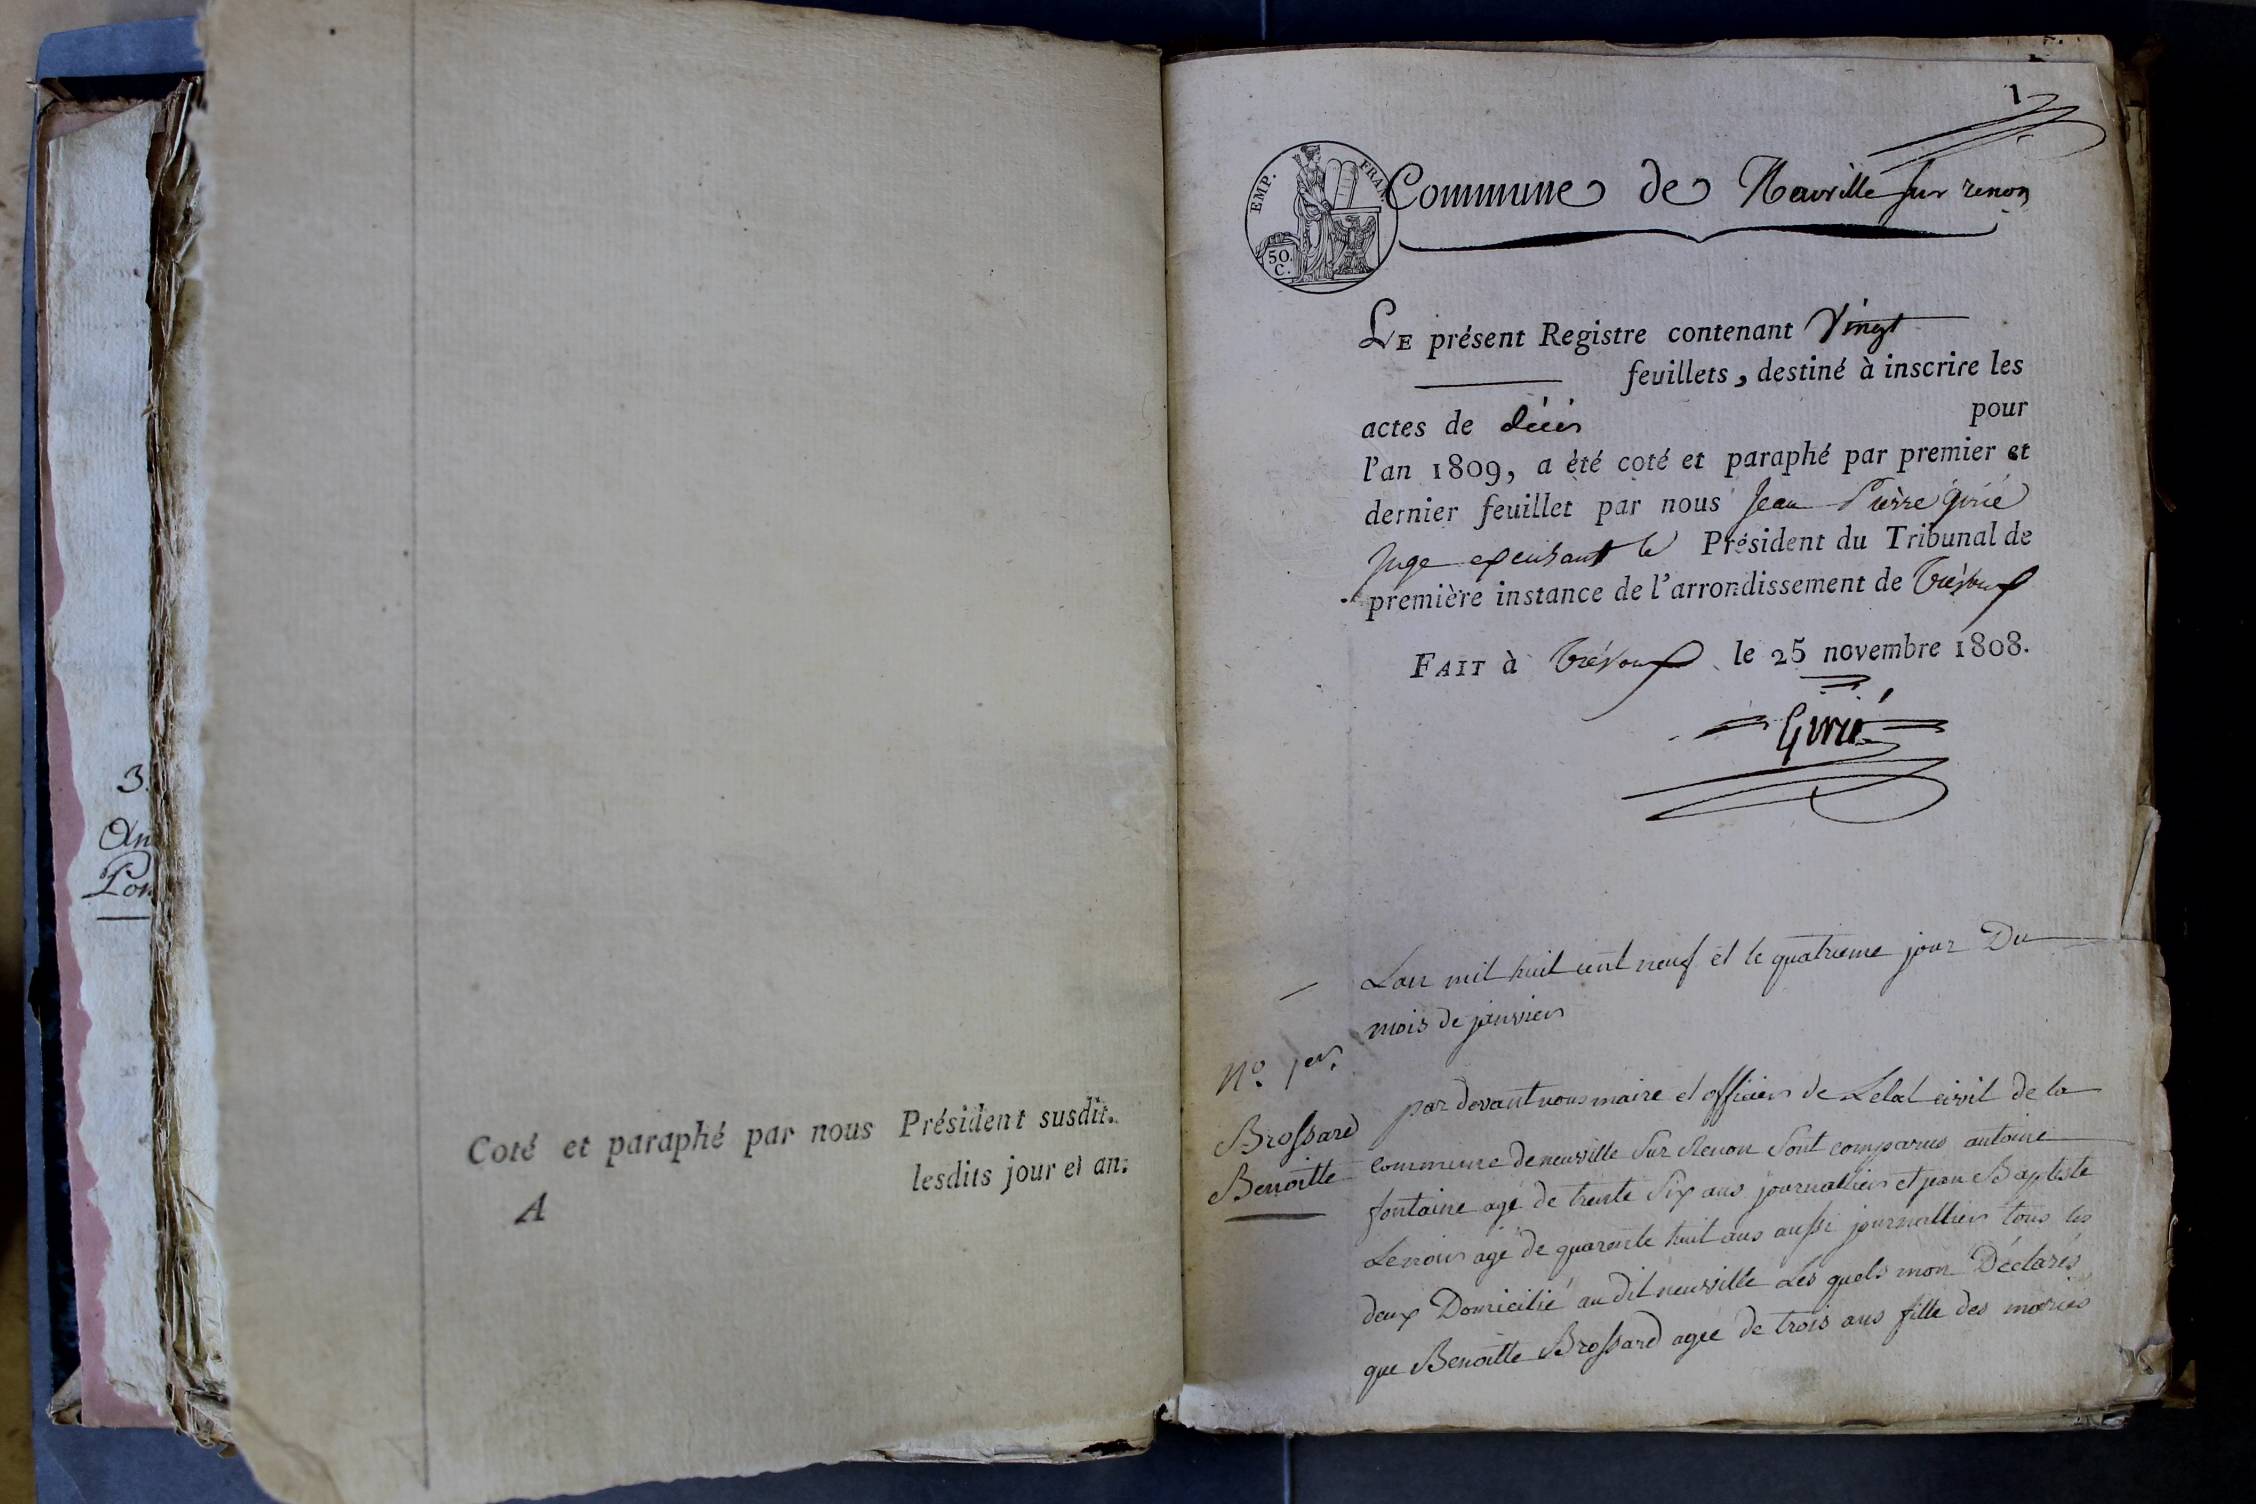 3.
An
Pon
Coté et paraphé par nous Président susdit.
lesdits jour et an.
A
1
EMP. FRAN.
50. C.
Commune de Neuville sur renon
LE présent Registre contenant Vingt
feuillets, destiné à inscrire les
actes de décès pour
l'an 1809, a été coté et paraphé par premier et
dernier feuillet par nous Jean Pierre Girié
Juge expeusant le Président du Tribunal de
première instance de l'arrondissement de Trévoux
FAIT à Trévoux le 25 novembre 1808.
Girié
Lan mil huit cent neuf et le quatrieme jour Du
mois de janvier
No. 1er.
Brossard
Benoitte
par devant nous maire et officier de Letat civil de la
commune de neuville Sur Renon Sont comparus antoine
fontaine agé de trente Six ans journallier et jean Baptiste
Lenoir agé de quarente huit ans aussi journallier tous les
deux Domicilié au dit neuville Les quels mon Déclarés
que Benoitte Brossard agée de trois ans fille des mariés